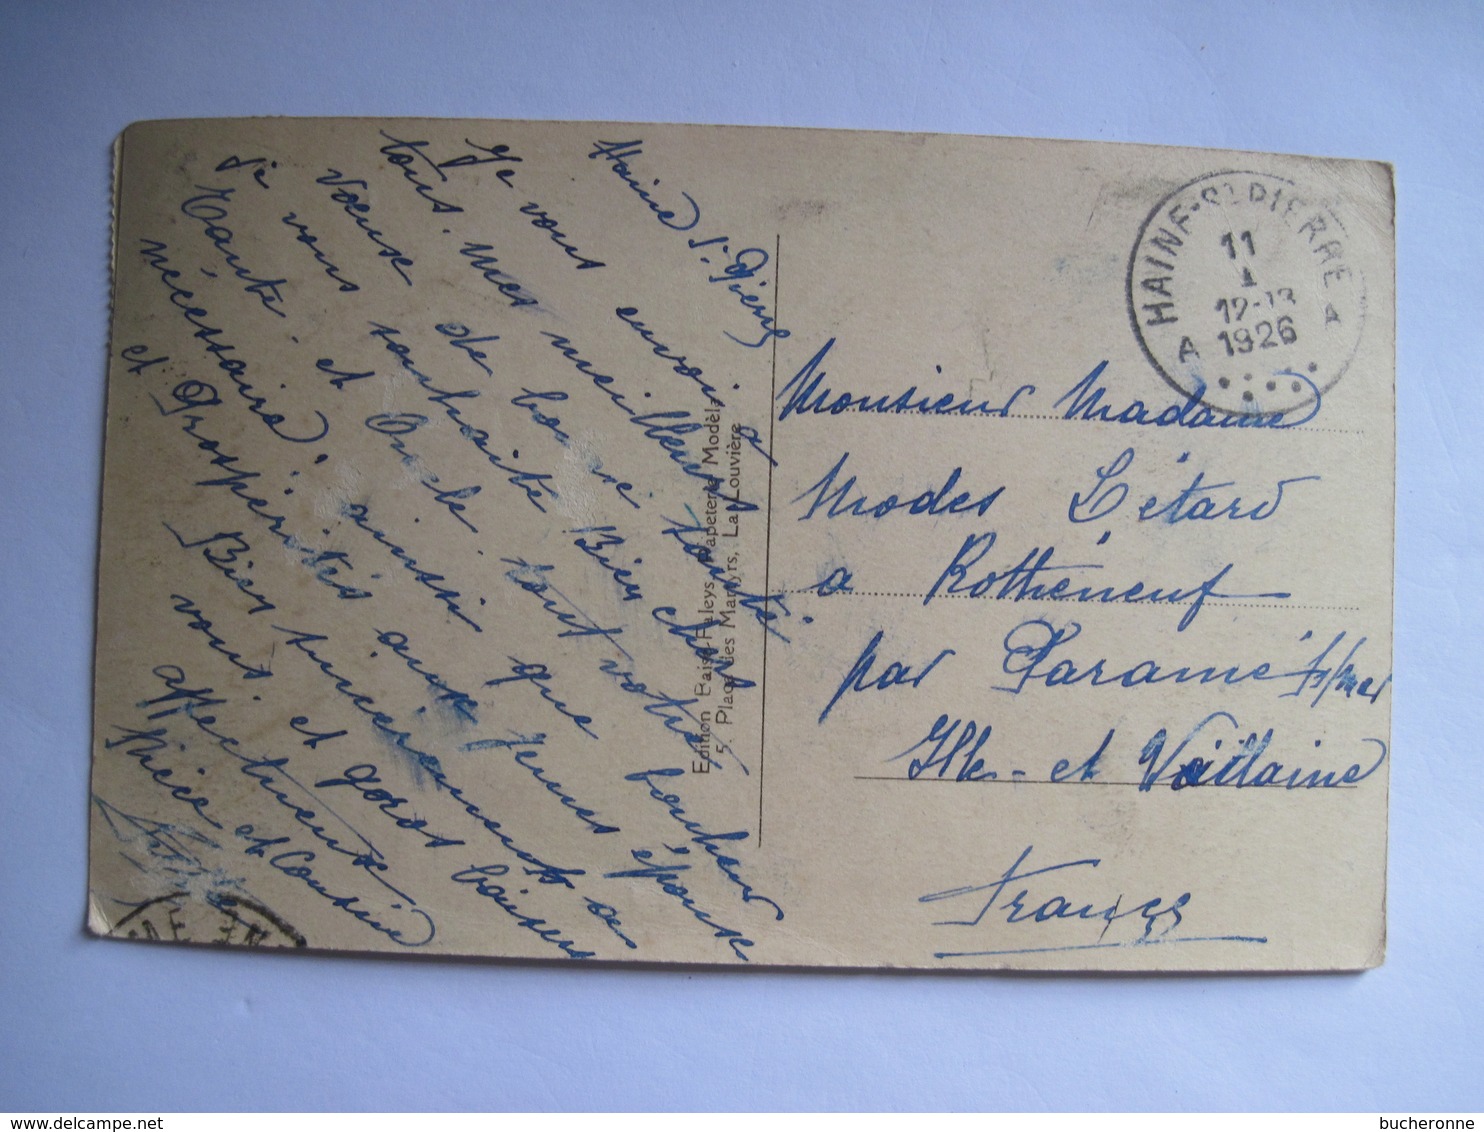 Haine St. Pierre
Je vous envoi a
tous. mes meilleurs souhaits
voeuse de bonne Santé
Je vous souhaite Bien chère
Tante. et Oncle. tout votre
nécessaire, ainsi que bonheur
et Prospérités avec Jeunes épouse
Bien sincèrement des
vous. et gros baisers
affectueuse
Nièce et Cousine
Edition Baise-Haleys, Papeterie Modèle
5, Place des Martyrs, La Louvière
HAINE-ST PIERRE
11
1
12-13
1926
A A
Monsieur Madame
Modes Létard
a Rothéneuf
par Paramé s/mer
Ille-et Vaillaine
France
bucheronne